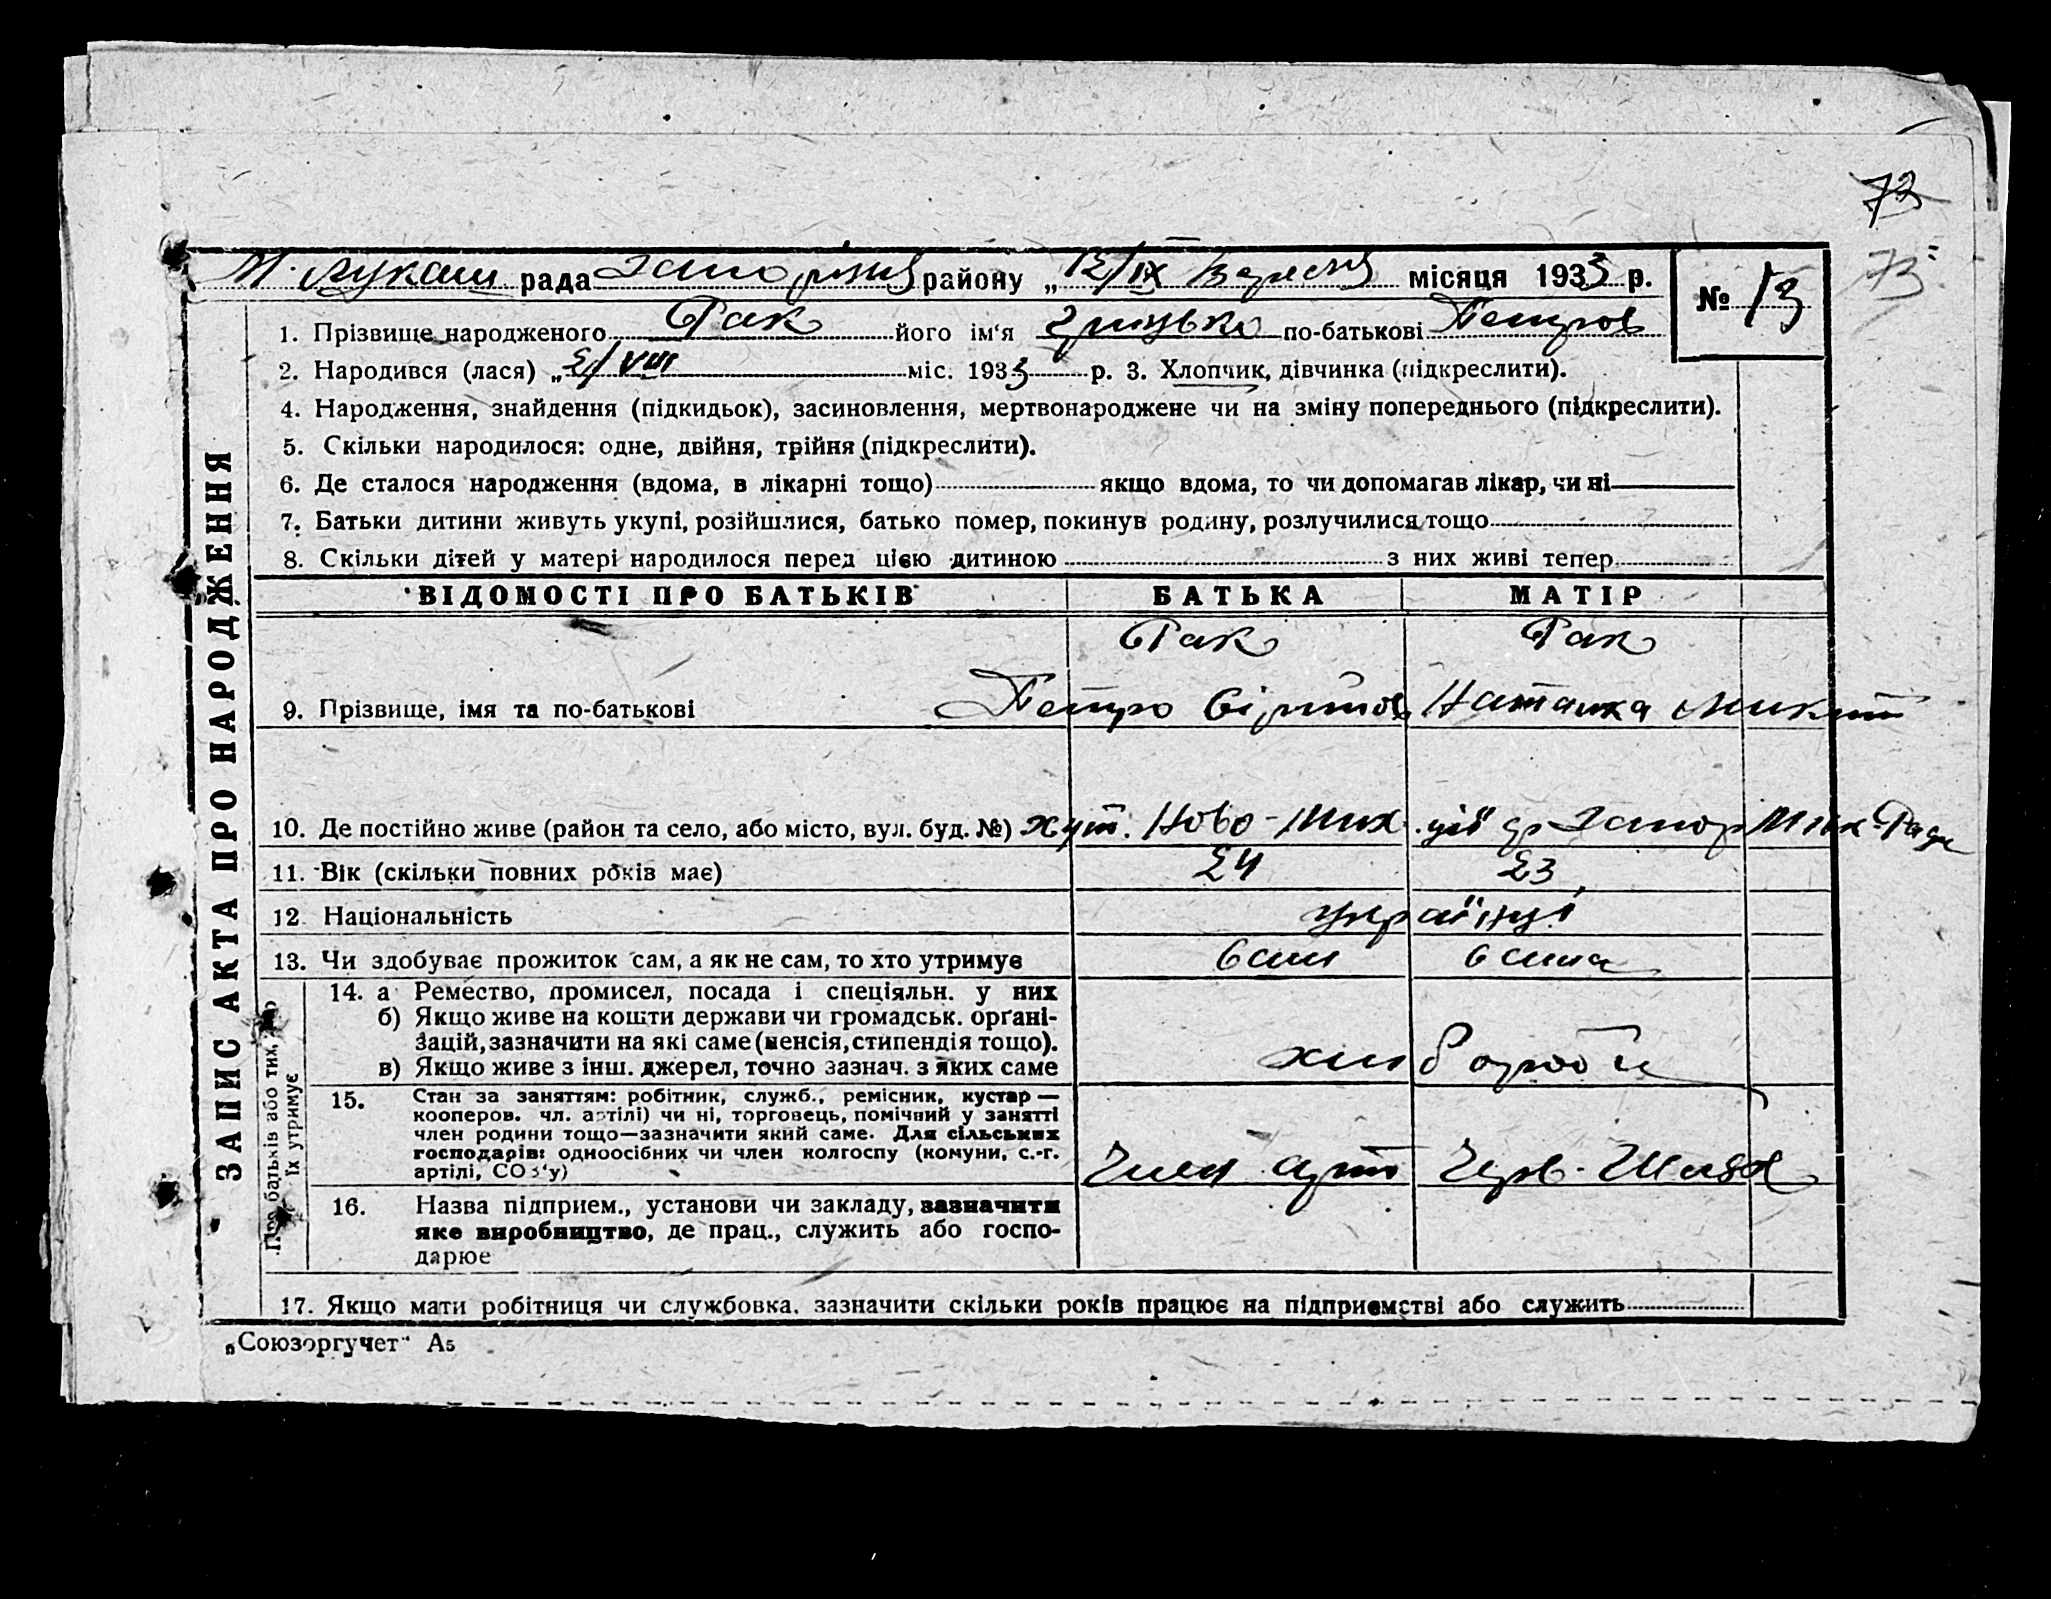 73
73
М. Лукаш. рада Запорізьк району „ 12/IX Вересня місяця 1933 р. № 13
1. Прізвище народженого Рак його ім‘я Грицько по-батькові Петров
2. Народився (лася) „ 2/VIII міс. 1933 р. 3. Хлопчик, дівчинка (підкреслити).
4. Народження, знайдення (підкидьок), засиновлення, мертвонароджене чи на зміну попереднього (підкреслити).
5. Скільки народилося: одне, двійня, трійня (підкреслити).
6. Де сталося народження (вдома, в лікарні тощо) якщо вдома, то чи допомагав лікар, чи ні
7. Батьки дитини живуть укупі, розійшлися, батько помер, покинув родину, розлучилися тощо
8. Скільки дітей у матері народилося перед цією дитиною з них живі тепер
ВІДОМОСТІ ПРО БАТЬКІВ БАТЬКА МАТІР
Рак Рак
9. Прізвище, імя та по-батькові Петро Наталка Микит
10. Де постійно живе (район та село, або місто, вул. буд. №) Хут. Ново-Мих. Запор
11. Вік (скільки повних років має) 24 23
12 Національність українці
13. Чи здобуває прожиток сам, а як не сам, то хто утримує сам сама
14. а Ремество, промисел, посада і спеціяльн. у них
б) Якщо живе на кошти держави чи громадськ. орґані-
зацій, зазначити на які саме (пенсія, стипендія тощо).
в) Якщо живе з інш. джерел, точно зазнач. з яких саме хліборобн
15. Стан за заняттям: робітник, служб., ремісник, кустар —
кооперов. чл. артілі) чи ні, торговець, помічний у занятті
член родини тощо—зазначити який саме. Для сільських
господарів: одноосібних чи член колгоспу (комуни, с.-г.
артілі, СОЗ‘у) Член арт Черв. Шлях
16. Назва підприєм., установи чи закладу, зазначити
яке виробництво, де прац., служить або госпо-
дарює
17. Якщо мати робітниця чи службовка, зазначити скільки років працює на підприємстві або служить
ЗАПИС АКТА ПРО НАРОДЖЕННЯ
Про батьків або тих, хто
їх утримує
„Союзоргучет“ А5